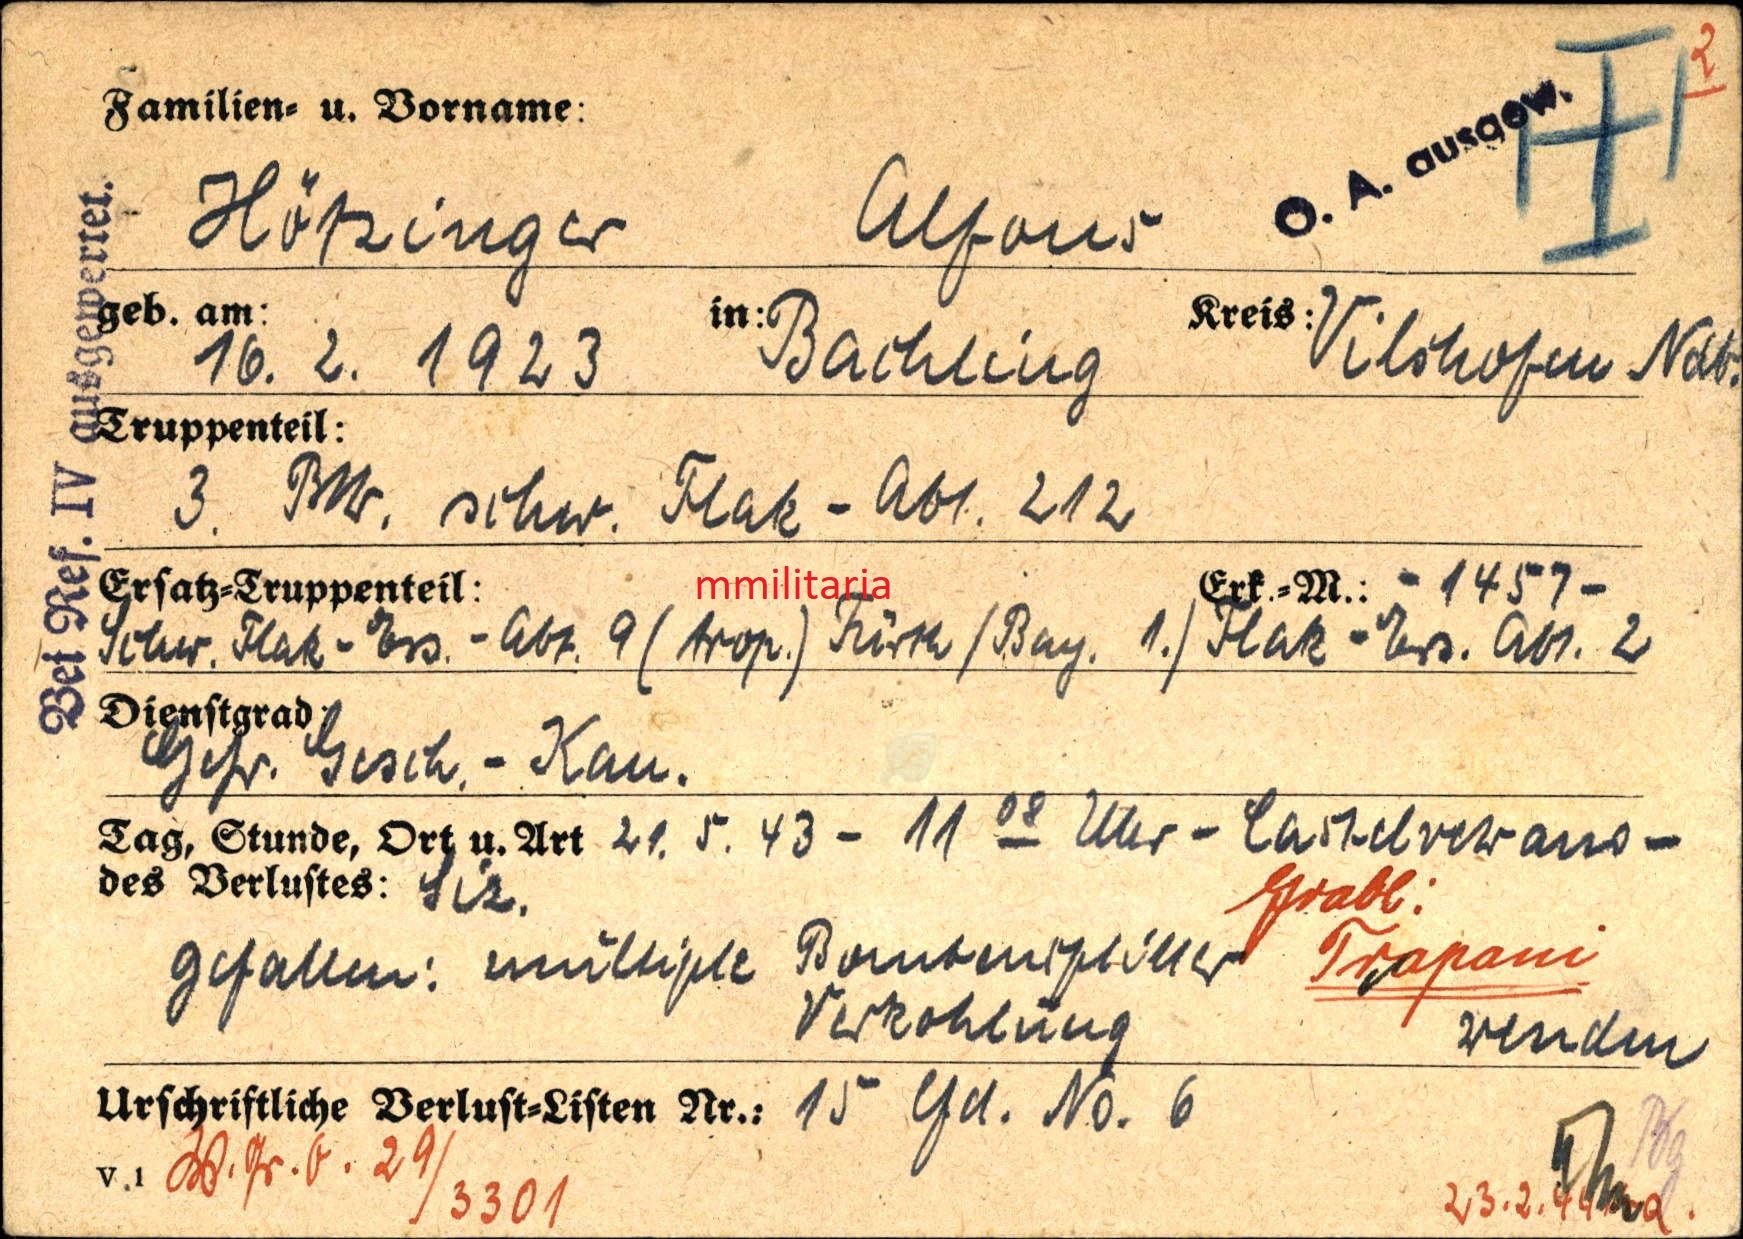 2
II
O. A. ausgew.
Bei Ref. IV ausgewertet.
Familien- u. Vorname:
Hötzinger Alfons
geb. am: in: Kreis:
16. 2. 1923 Bachling Vilshofen Ndb.
Truppenteil:
3. Bttr. schw. Flak - Abt. 212
Ersatz-Truppenteil: mmilitaria Erk.-M.: - 1457 -
Schw. Flak - Ers. - Abt. 9 (trop.) Fürth / Bay. 1./ Flak - Ers. Abt. 2
Dienstgrad:
Gefr. Gesch. - Kan.
Tag, Stunde, Ort u. Art 21. 5. 43 - 11 08 Uhr - Castelvetrano -
des Verlustes: Siz.
Grabl:
gefallen: multiple Bombensplitter Trapani
Verkohlung wenden
Urschriftliche Verlust-Listen Nr.: 15 lfd. No. 6
V. 1 29/3301
23.2.44